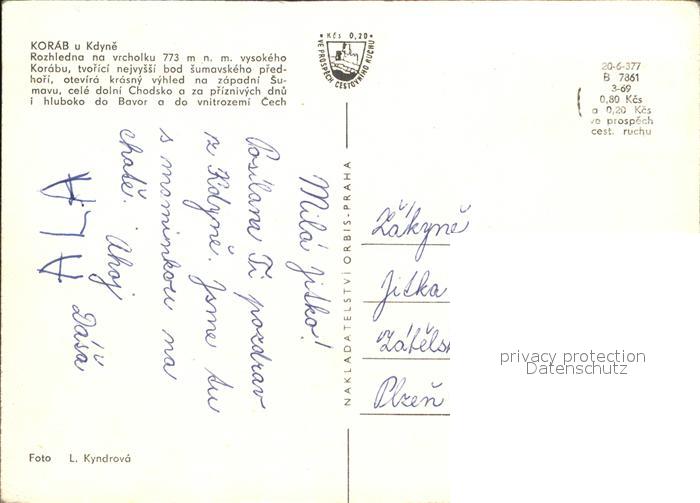 KORÁB u Kdyně
Rozhledna na vrcholku 773 m n. m. vysokého
Korábu, tvořící nejvyšší bod šumavského před-
hoří, otevírá krásný výhled na západní Šu-
mavu, celé dolní Chodsko a za příznivých dnů
i hluboko do Bavor a do vnitrozemí Čech
Kčs 0,20
VE PROSPĚCH CESTOVNÍHO RUCHU
20-6-377
B 7861
3-69
0,80 Kčs
a 0,20 Kčs
ve prospěch
cest. ruchu
Milá Jitko!
Posílám Ti pozdrav
z Kdyně. Jsme tu
s maminkou na
chatě. Ahoj
Dáša
NAKLADATELSTVÍ ORBIS-PRAHA
Žákyně
Jitka
Plzeň
privacy protection
Datenschutz
Foto L. Kyndrová